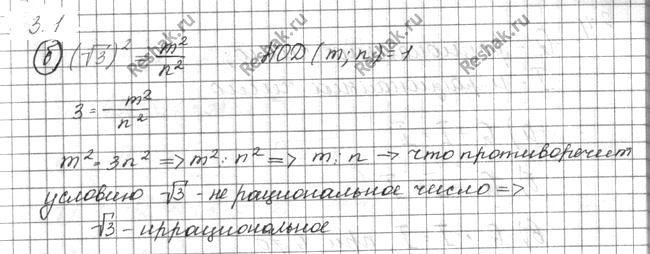 3.1
б) (√3)² = m²/n² НОД (m; n) = 1
3 = m²/n²
m² = 3n² => m² ⋮ n² => m ⋮ n -> что противоречит
условию √3 - не рациональное число =>
√3 - иррациональное
Reshak.ru
Reshak.ru
Reshak.ru